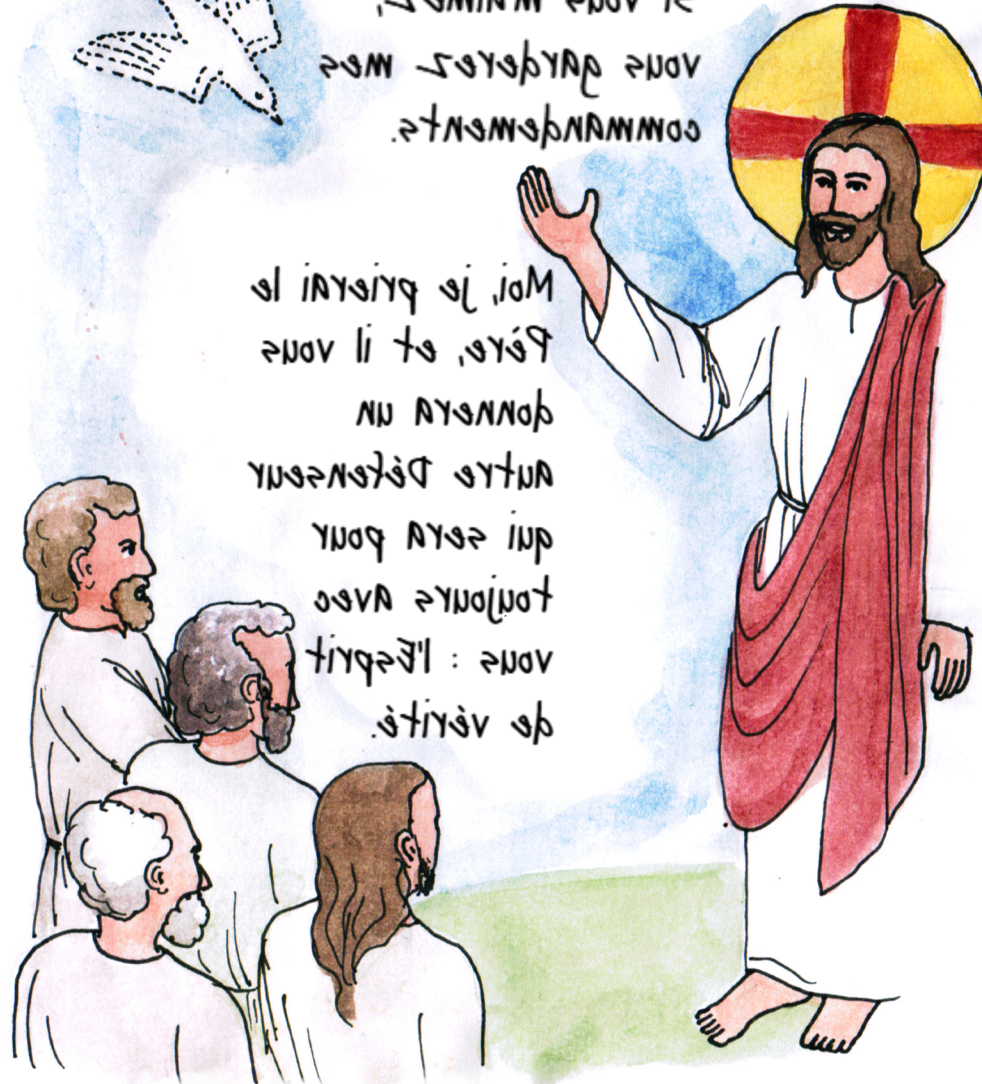 si vous m'aimez,
vous garderez mes
commandements.
Moi, je prierai le
Père, et il vous
donnera un
autre Défenseur
qui sera pour
toujours avec
vous : l'Esprit
de vérité.